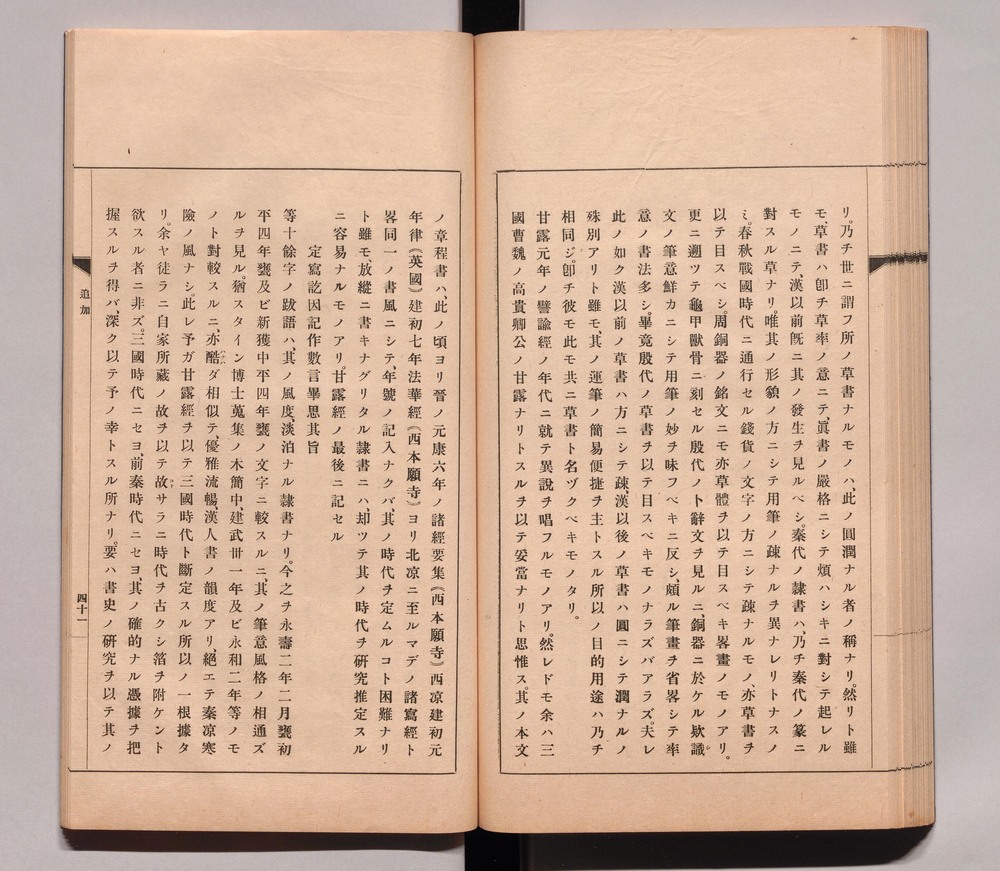 リ。乃チ世ニ謂フ所ノ草書ナルモノハ、此ノ圓潤ナル者ノ稱ナリ。然リト雖
モ、草書ハ卽チ草率ノ意ニテ、眞書ノ嚴格ニシテ煩ハシキニ對シテ起レル
モノニテ、漢以前旣ニ其ノ發生ヲ見ルベシ。秦代ノ隷書ハ、乃チ秦代ノ篆ニ
對スル草ナリ。唯其ノ形貌ノ方ニシテ用筆ノ疎ナルヲ異ナレリトナスノ
ミ。春秋戰國時代ニ通行セル錢貨ノ文字ノ方ニシテ疎ナルモノ、亦草書ヲ
以テ目スベシ。周銅器ノ銘文ニモ亦草體ヲ以テ目スベキ畧畫ノモノアリ。
更ニ遡ツテ龜甲獸骨ニ刻セル殷代ノ卜辭文ヲ見ルニ、銅器ニ於ケル欵識
文ノ筆意鮮カニシテ用筆ノ妙ヲ味フベキニ反シ、頗ル筆畫ヲ省畧シテ率
意ノ書法多シ。畢竟殷代ノ草書ヲ以テ目スベキモノナラズバアラズ。夫レ
此ノ如ク漢以前ノ草書ハ方ニシテ疎、漢以後ノ草書ハ圓ニシテ潤ナルノ
殊別アリト雖モ、其ノ運筆ノ簡易便捷ヲ主トスル所以ノ目的用途ハ乃チ
相同ジ。卽チ彼モ此モ共ニ草書ト名ヅクベキモノタリ。
甘露元年ノ譬諭經ノ年代ニ就テ異說ヲ唱フルモノアリ。然レドモ余ハ三
國曹魏ノ高貴卿公ノ甘露ナリトスルヲ以テ妥當ナリト思惟ス。其ノ本文
ノ章程書ハ、此ノ頃ヨリ晉ノ元康六年ノ諸經要集(西本願寺)西涼建初元
年律(英國)建初七年法華經(西本願寺)ヨリ北凉ニ至ルマデノ諸寫經ト
畧同一ノ書風ニシテ、年號ノ記入ナクバ、其ノ時代ヲ定ムルコト困難ナリ
ト雖モ、放縱ニ書キナグリタル隷書ニハ、却ツテ其ノ時代ヲ研究推定スル
ニ容易ナルモノアリ。甘露經ノ最後ニ記セル
定寫訖因記作數言畢思其旨
等十餘字ノ跋語ハ、其ノ風度淡泊ナル隷書ナリ。今之ヲ永壽二年二月甕初
平四年甕及ビ新獲中平四年甕ノ文字ニ較スルニ、其ノ筆意風格ノ相通ズ
ルヲ見ル。猶スタイン博士蒐集ノ木簡中、建武卅一年及ビ永和二年等ノモ
ノト對較スルニ、亦酷ダ相似テ、優雅流暢、漢人書ノ韻度アリ、絕エテ秦凉寒
險ノ風ナシ。此レ予ガ甘露經ヲ以テ三國時代ト斷定スル所以ノ一根據タ
リ。余ヤ徒ラニ自家所藏ノ故ヲ以テ故サラニ時代ヲ古クシ箔ヲ附ケント
欲スル者ニ非ズ。三國時代ニセヨ、前秦時代ニセヨ、其ノ確的ナル憑據ヲ把
握スルヲ得バ、深ク以テ予ノ幸トスル所ナリ。要ハ書史ノ硏究ヲ以テ其ノ
追加
四十一